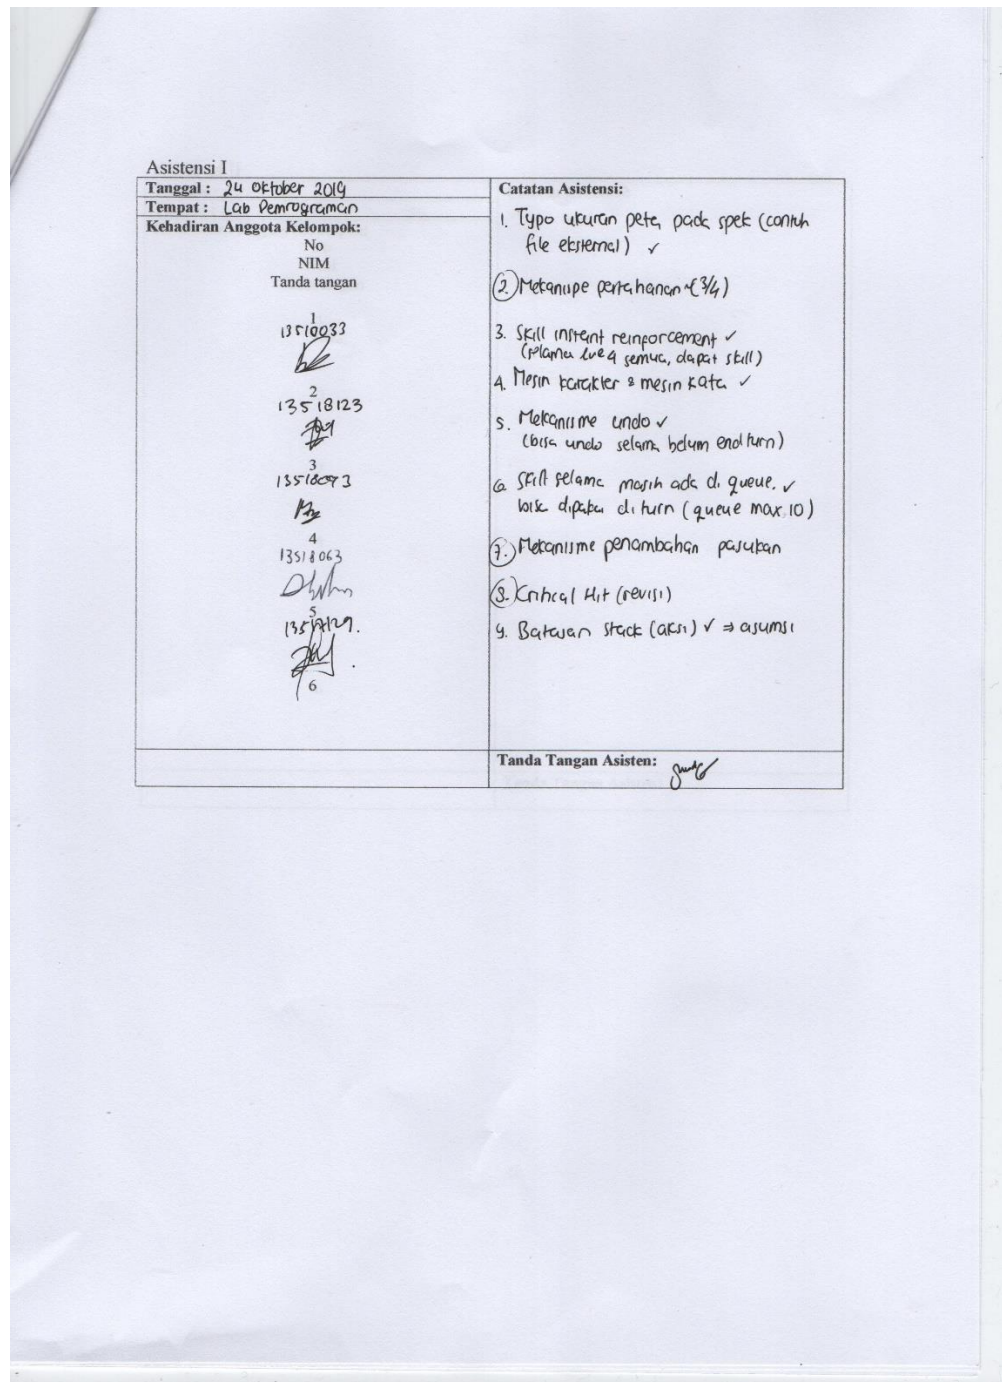 Asistensi I
Tanggal : 24 Oktober 2019
Tempat : Lab Pemrograman
Kehadiran Anggota Kelompok:
No
NIM
Tanda tangan
1
13518033
2
13518123
3
13518093
4
13518063
5
13517129.
6
Catatan Asistensi:
1. Typo ukuran peta pada spek (contoh
file eksternal) ✓
2. Mekanisme pertahanan (3/4)
3. Skill instant reinforcement ✓
(selama lvl 4 semua, dapat skill)
4. Mesin karakter & mesin kata ✓
5. Mekanisme undo ✓
(bisa undo selama belum end turn)
6. Skill selama masih ada di queue. ✓
bisa dipakai di turn (queue max 10)
7. Mekanisme penambahan pasukan
8. Critical Hit (revisi)
9. Batasan stack (aksi) ✓ ⇒ asumsi
Tanda Tangan Asisten: